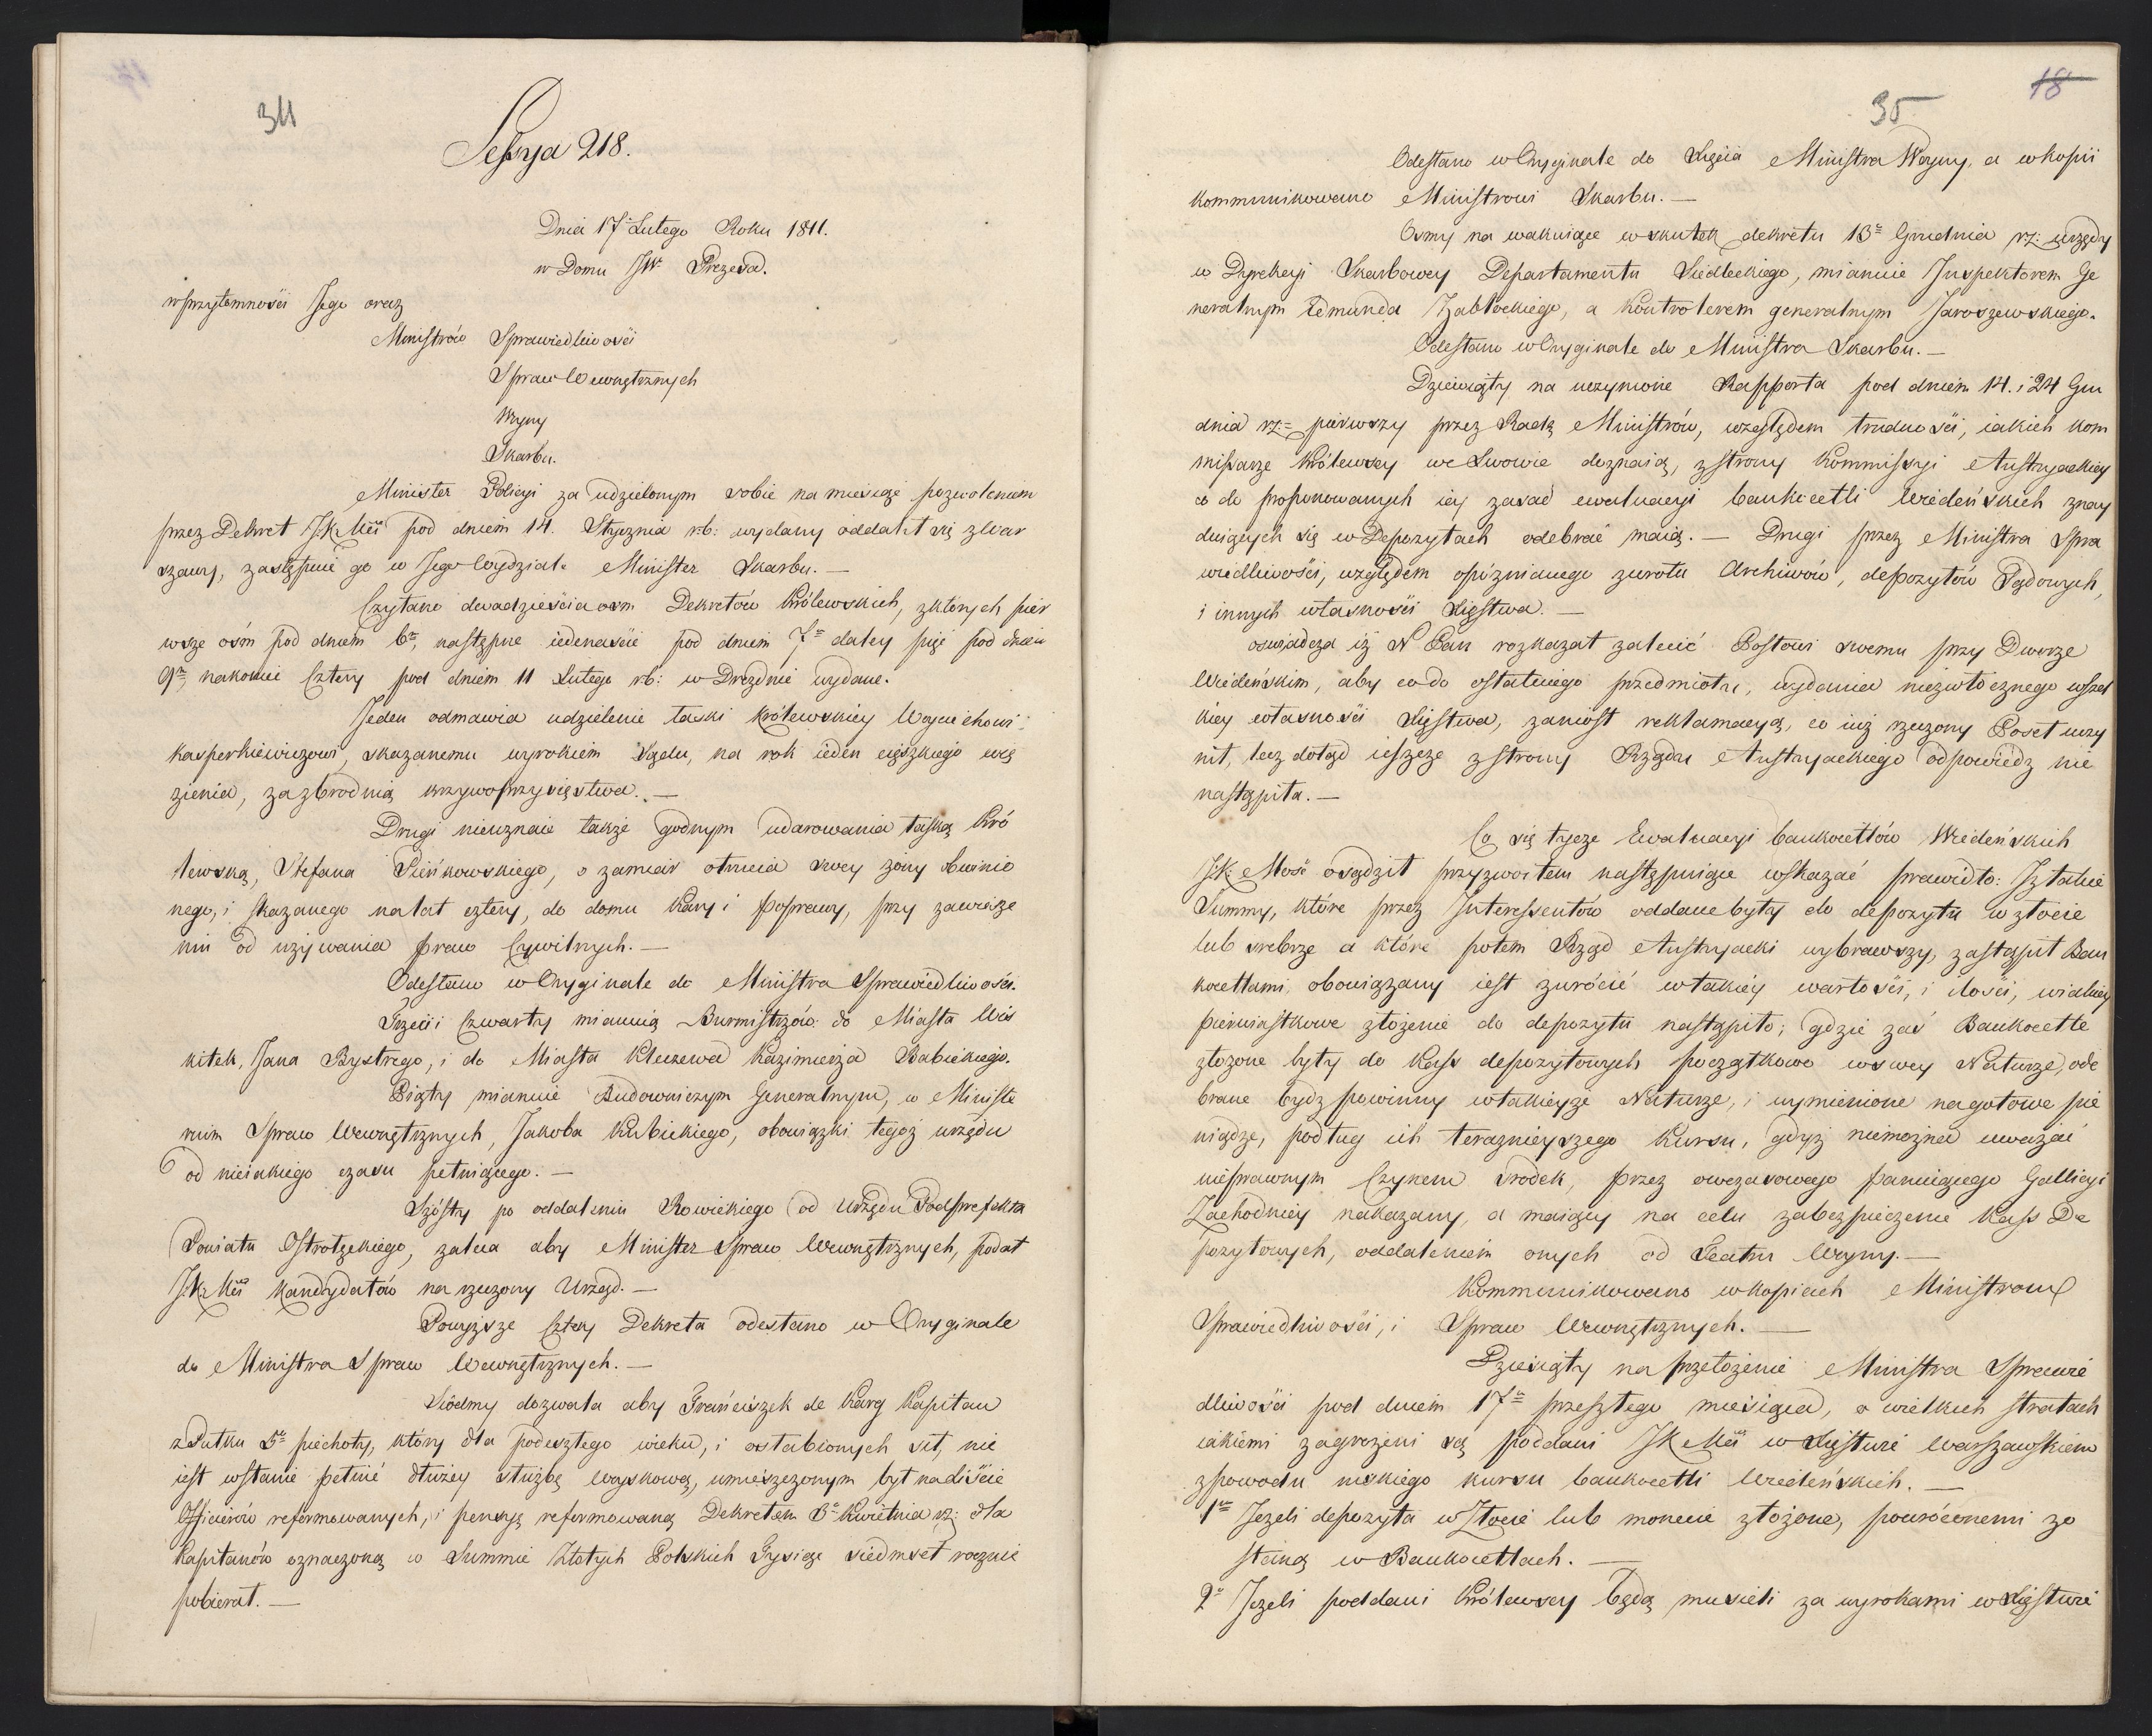 34
Sessya 218.
Dnia 17º Lutego Roku 1811.
w Domu JW. Prezesa.
w przytomności Jego oraz
Ministrów Sprawiedliwości
Spraw Wewnętrznych
Woyny
Skarbu.
Minister Policyi za udzielonym sobie na miesiąc pozwoleniem
przez Dekret J.K.Mci pod dniem 14. Stycznia r.b: wydany oddalił się z War
szawy, zastąpnie go w Jego Wydziale Minister Skarbu. —
Czytano dwadzieścia osm Dekretów Królewskich, z których pier
wsze ośm pod dniem 6m, następne iedenaście pod dniem 7m daley pięć pod dniem
9m, nakoniec cztery pod dniem 11 Lutego r.b: w Dreźnie wydane.
Jeden odmawia udzielenie łaski Królewskiey Woyciechowi
Kasperkiewiczowi, skazanemu wyrokiem Sądu, na rok ieden cięszkiego wię
zienia, za zbrodnią krzywoprzysięstwa. —
Drugi nieuznaie także godnym udarowania łaską Kró
lewską, Stefana Pieńkowskiego, o zamiar otrucia swey żony obwinio
nego, i skazanego na lat cztery, do domu Kary i poprawy, przy zawiesze
niu od używania praw Cywilnych. —
Odesłano w Oryginale do Ministra Sprawiedliwości.
Trzeci i Czwarty mianuią Burmistrzów: do Miasta Wis
kitek, Jana Bystrego, i do Miasta Kleczewa Kazimierza Babickiego.
Piąty mianuie Budowniczym Generalnym, w Ministe
ruim Spraw Wewnętrznych, Jakóba Kubickiego, obowiązki tegoż urzędu
od nieiakiego czasu pełniącego. —
Szósty po oddaleniu Rowickiego od Urzędu Podprefekta
Powiatu Ostrołęckiego, zaleca aby Minister Spraw Wewnętrznych, podał
J.K.Mci Kandydatów na rzeczony Urząd. —
Powyższe Cztery Dekreta odesłano w Oryginale
do Ministra Spraw Wewnętrznych. —
Siódmy dozwala aby Franciszek de Karg Kapitan
z Pułku 5º piechoty, który dla podeszłego wieku, i osłabionych sił, nie
iest w stanie pełnić dłużey służbę woyskową, umieszczonym był na liście
Officierów reformowanych, i pensyą reformowaną Dekretem 3º Kwietnia r.z: dla
Kapitanów oznaczoną w Summie Złotych Polskich Tysiąc siedmset rocznie
pobierał. —
18
35
Odesłano w Oryginale do Xięcia Ministra Woyny, a w kopii
kommunikowano Ministrowi Skarbu. —
Osmy na wakuiące w skutek dekretu 13º Grudnia r.z: urzędy
w Dyrekcyi Skarbowey Departamentu Siedleckiego, mianuie Inspektorem Ge
neralnym Edmunda Zabłockiego, a Kontrolerem generalnym Jaroszewskiego.
Odesłano w Oryginale do Ministra Skarbu. —
Dziewiąty na uczynione Rapporta pod dniem 14. i 24 Gru
dnia r.z: pierwszy przez Radę Ministrów, względem trudności, iakich kom
missarze Królewscy we Lwowie doznaią, z strony Kommissyi Austryackiey
co do proponowanych iey zasad ewaluacyi bankocetli Wiedeńskich znay
duiących się w Depozytach odebrać maią. — Drugi przez Ministra Spra
wiedliwości, względem opóznianego zwrotu Archiwów, depozytów Sądowych,
i innych własności Xięstwa. —
oswiadcza iż N Pan rozkazał zalecić Posłowi swemu przy Dworze
Wiedeńskim, aby co do ostatniego przedmiotu, wydania niezwłocznego wszel
kiey własności Xięstwa, zaniosł reklamacyą, co iuż rzeczony Poseł uczy
nił, lecz dotąd ieszcze z strony Rządu Austryackiego odpowiedz nie
nastąpiła. —
Co się tycze Ewaluacyi bankocetlów Wiedeńskich
J.K: Mość osądził przyzwoitem następuiące wskazać prawidło: Iż takie
Summy, które przez Interessentów oddane były do depozytu w złocie
lub srebrze a które potem Rząd Austryacki wybrawszy, zastąpił Ban
kocetlami, obowiązany iest zwrócić w takiey wartości, i ilości, w iakiey
pierwiastkowe złożenie do depozytu nastąpiło; gdzie zaś Bankocetle
złożone były do Kass depozytowych początkowo w swey Naturze, ode
brane bydz powinny w takieyże Naturze, i wymienione na gotowe pie
niądze, podług ich teraznieyszego Kursu, gdyż niemożna uważać
nieprawnym Czynem środek, przez owczasowego panuiącego Gallicyi
Zachodniey nakazany, a maiący na celu zabezpieczenie Kass De
pozytowych, oddaleniem onych od Teatru Woyny. —
Kommunikowano w kopiach Ministrom
Sprawiedliwości, i Spraw Wewnętrznych. —
Dziesiąty na przełożenie Ministra Sprawie
dliwości pod dniem 17m przeszłego miesiąca, o wielkich stratach
iakiemi zagrożeni są poddani J K Mci w Xięstwie Warszawskiem
z powodu niskiego kursu bankocetli Wiedeńskich. —
1º Jeżeli depozyta w Złocie lub monecie złożone, powróconemi zo
staną w Bankocetlach. —
2º Jeżeli poddani Królewscy będą musieli za wyrokami w Xięstwie